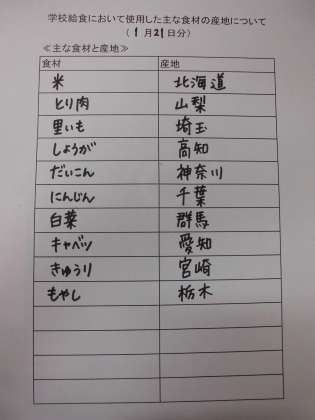 学校給食において使用した主な食材の産地について
（1月21日分）
≪主な食材と産地≫
食材 産地
米 北海道
とり肉 山梨
里いも 埼玉
しょうが 高知
だいこん 神奈川
にんじん 千葉
白菜 群馬
キャベツ 愛知
きゅうり 宮崎
もやし 栃木